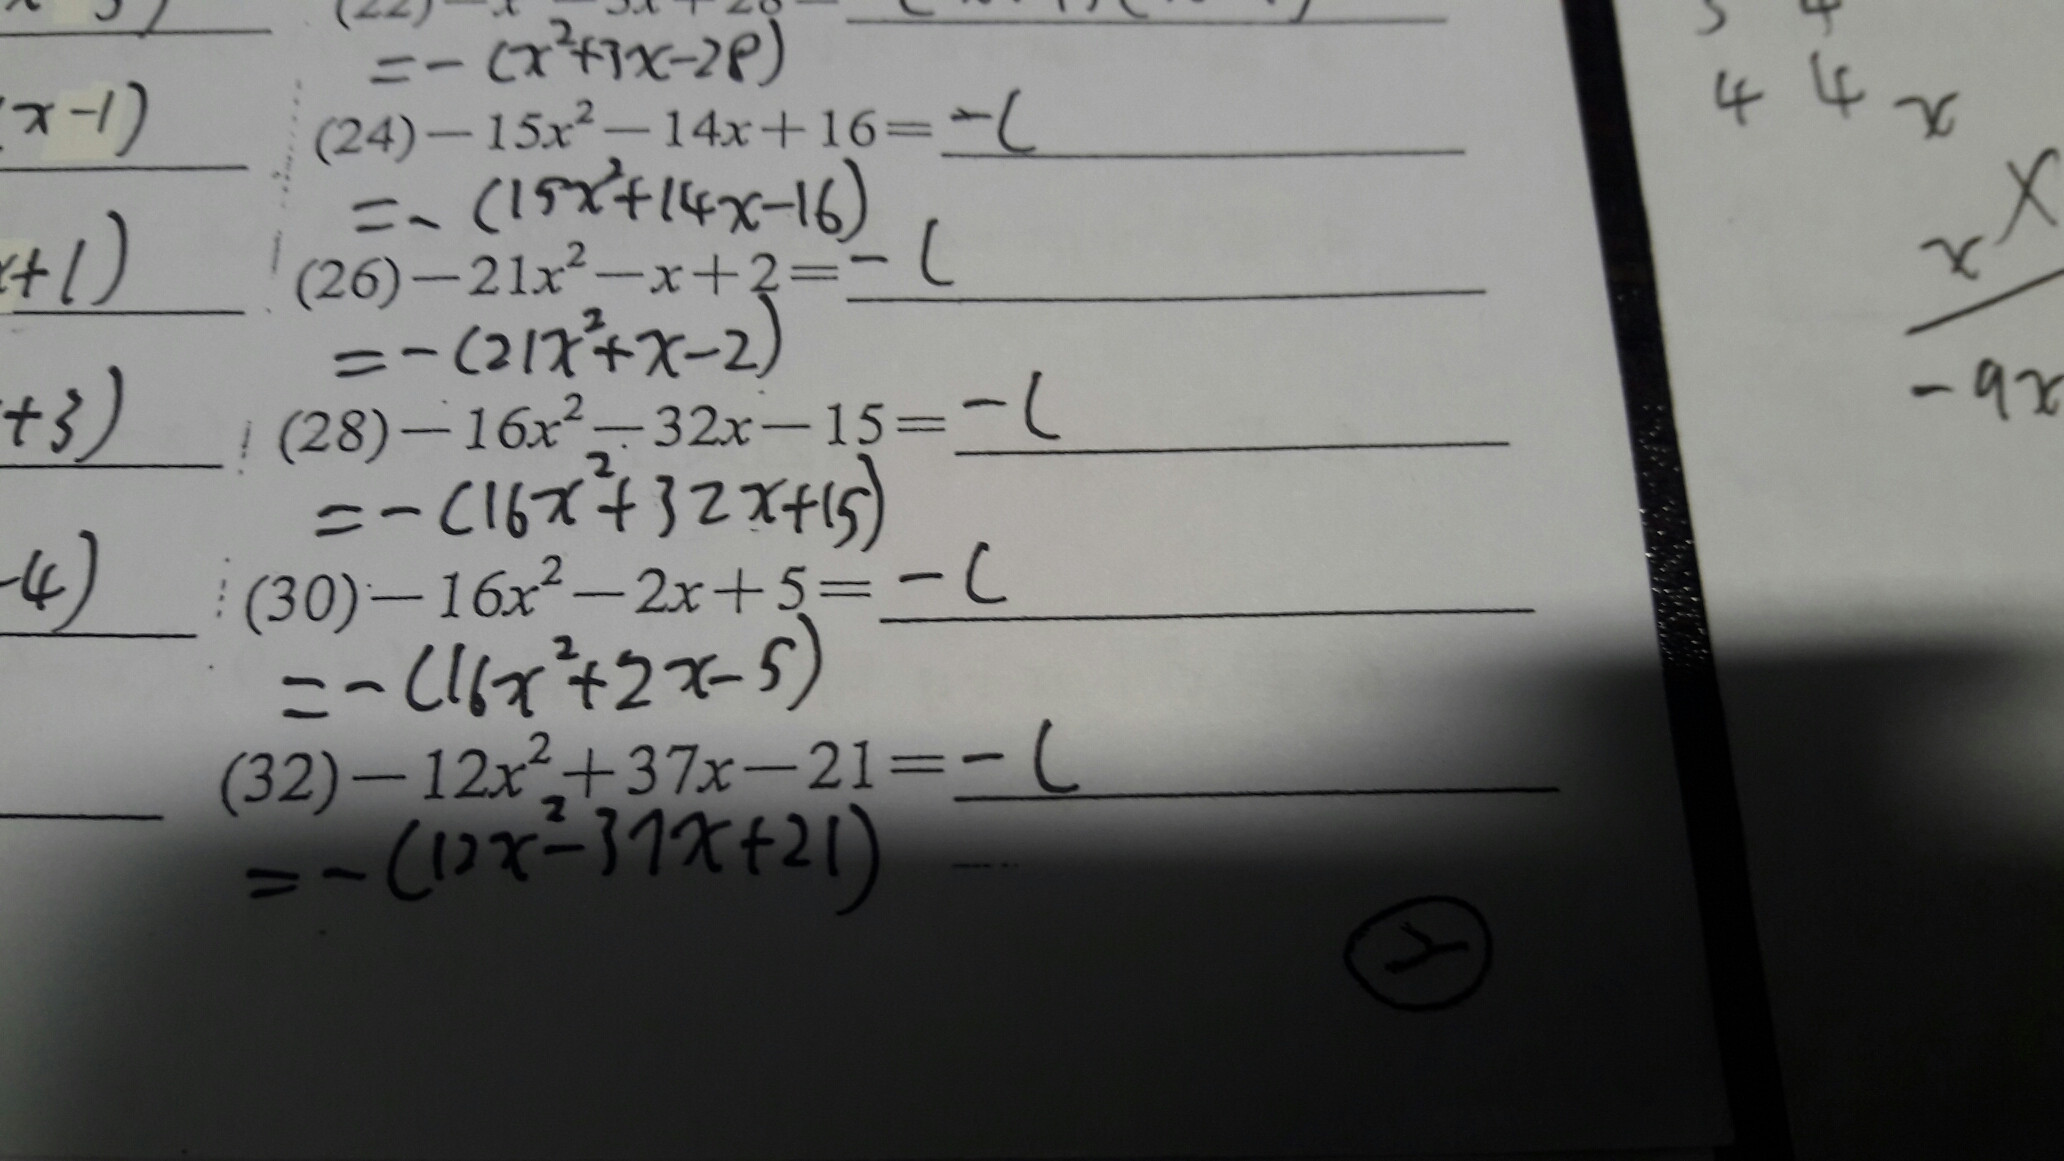 = - (x²+3x-28)
x-1)
(24) -15x²-14x+16= -(
= - (15x²+14x-16)
+1)
(26) -21x²-x+2= -(
= - (21x²+x-2)
+3)
(28) -16x²-32x-15= -(
= - (16x²+32x+15)
-4)
(30) -16x²-2x+5= -(
= - (16x²+2x-5)
(32) -12x²+37x-21= -(
= - (12x²-37x+21)
4 4 x
x X
-9x